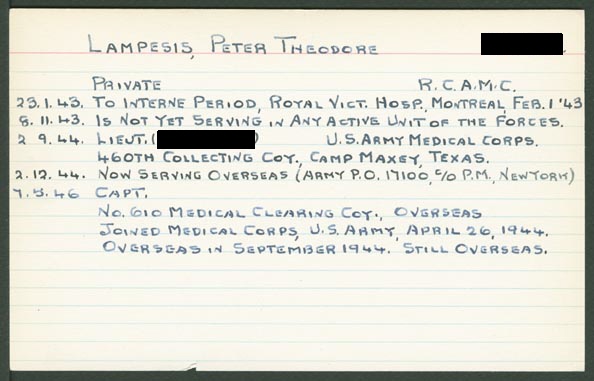 LAMPESIS, PETER THEODORE
PRIVATE R.C.A.M.C.
23.1.43. TO INTERNE PERIOD, ROYAL VICT. HOSP., MONTREAL, FEB. 1 '43
8.11.43. IS NOT YET SERVING IN ANY ACTIVE UNIT OF THE FORCES.
2 9.44. LIEUT. ( ) U.S. ARMY MEDICAL CORPS.
460TH COLLECTING COY., CAMP MAXEY, TEXAS.
2.12.44. NOW SERVING OVERSEAS (ARMY P.O. 17100, C/O P.M., NEW YORK)
7.5.46 CAPT.
NO. 610 MEDICAL CLEARING COY., OVERSEAS
JOINED MEDICAL CORPS, U.S. ARMY, APRIL 26, 1944.
OVERSEAS IN SEPTEMBER 1944. STILL OVERSEAS.